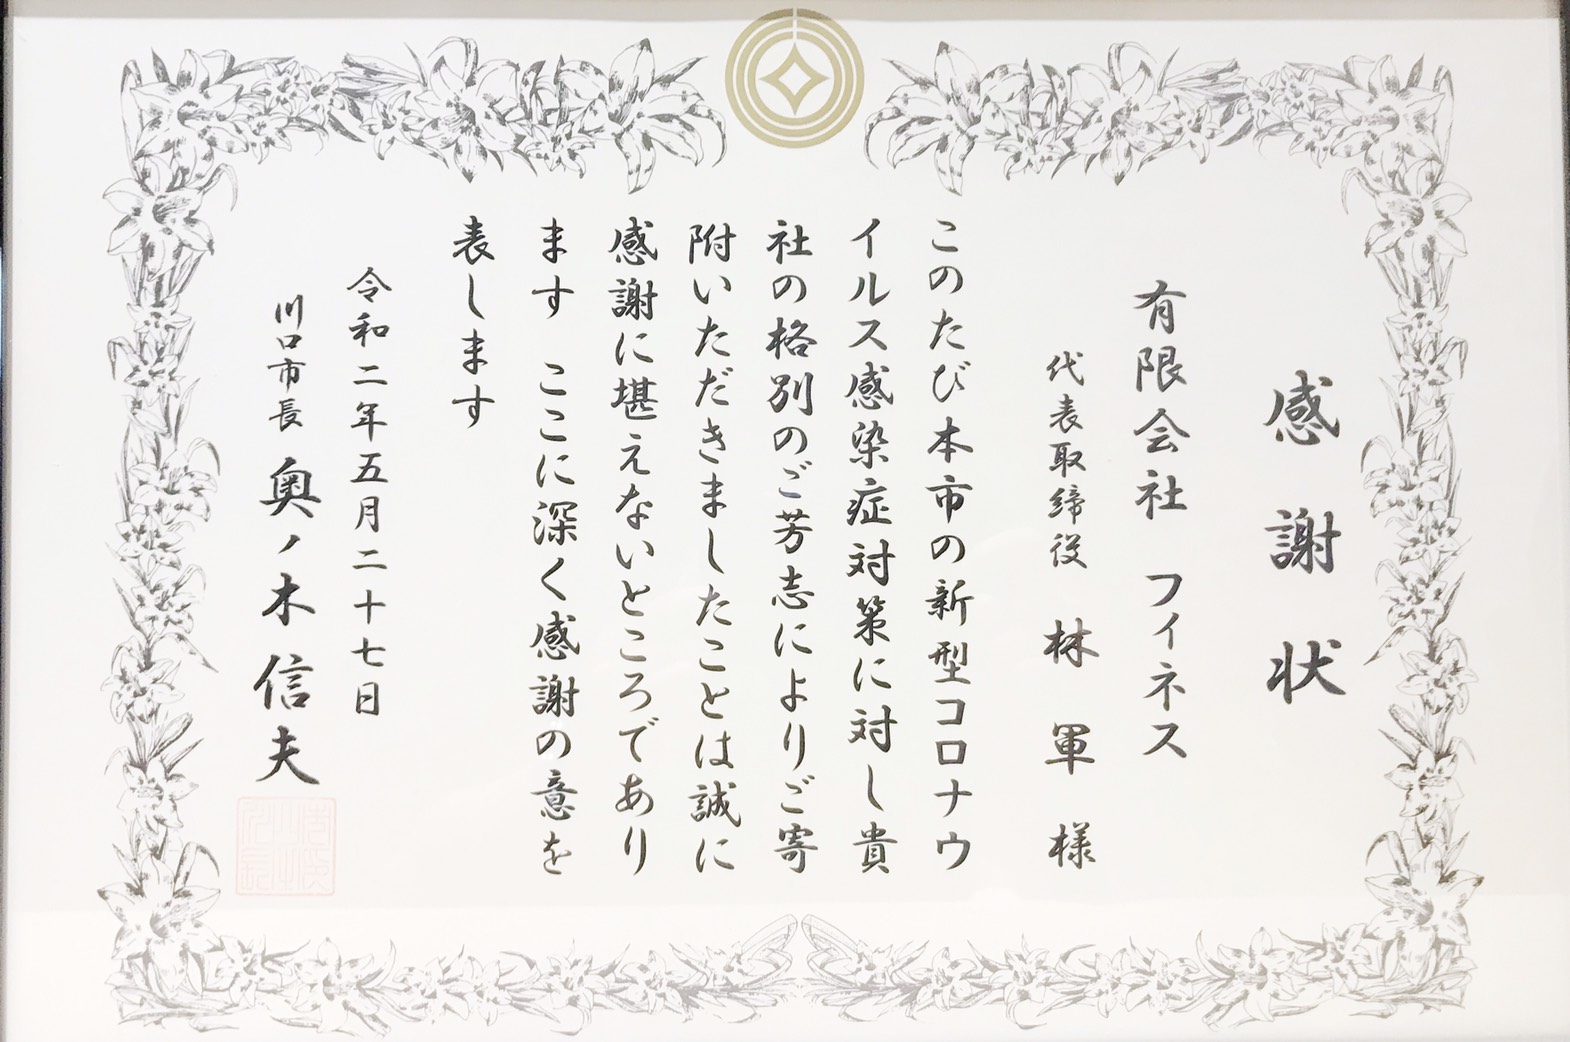 感謝状
有限会社 フィネス
代表取締役 林軍様
このたび本市の新型コロナウ
イルス感染症対策に対し貴
社の格別のご芳志によりご寄
附いただきましたことは誠に
感謝に堪えないところであり
ます ここに深く感謝の意を
表します
令和二年五月二十七日
川口市長 奥ノ木信夫